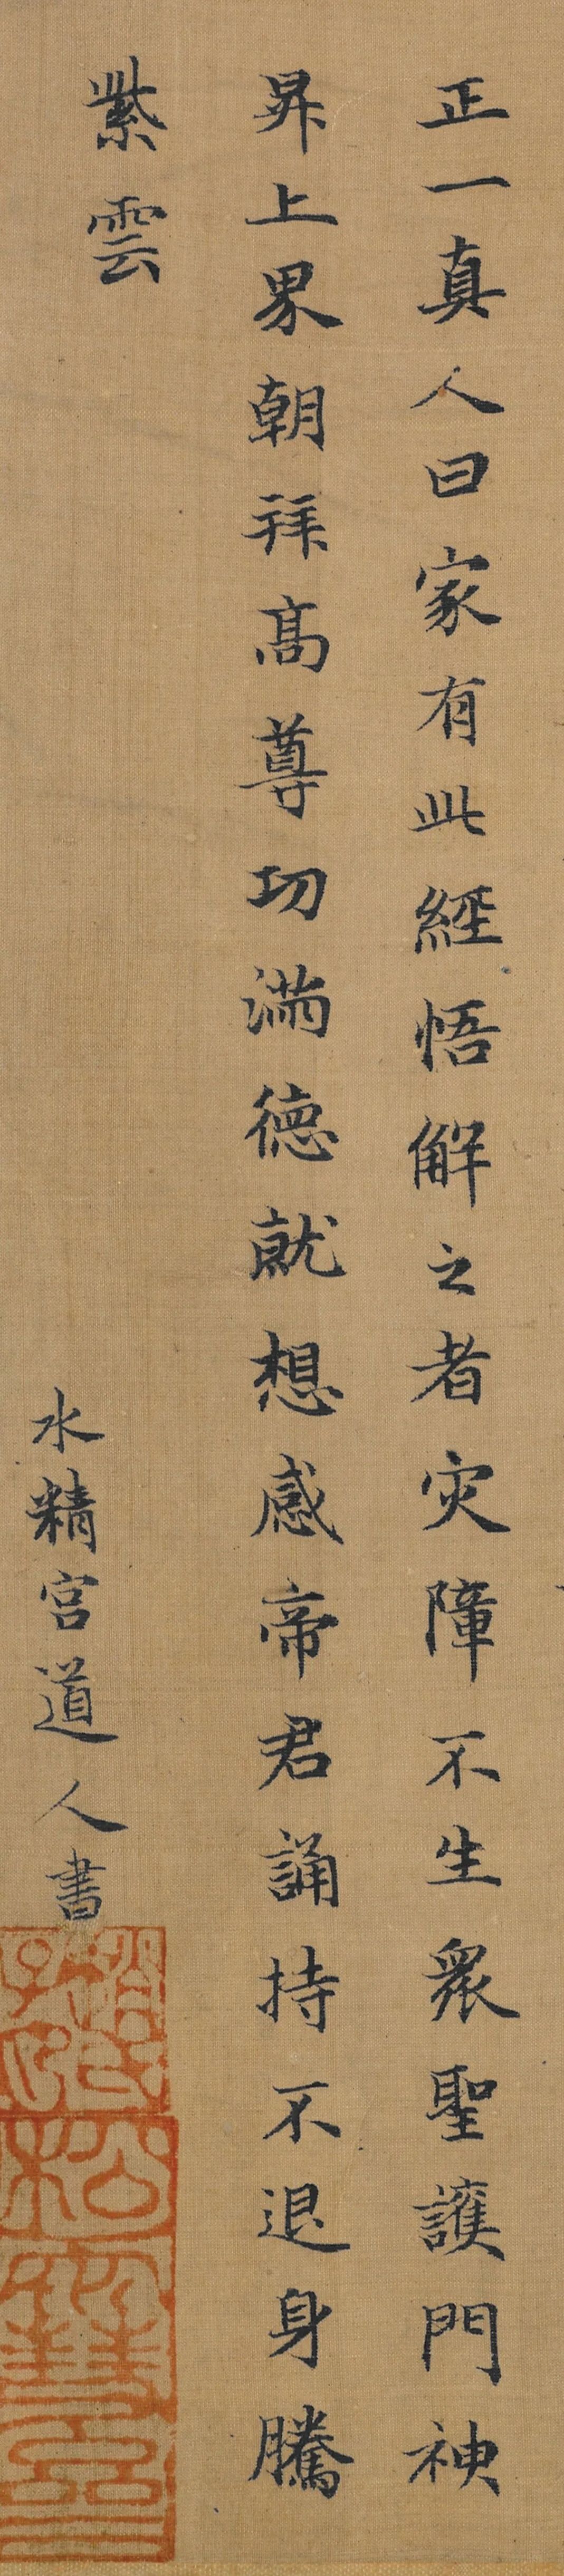 正一真人曰家有此經悟解之者灾障不生衆聖護門神
昇上界朝拜高尊功滿德就想感帝君誦持不退身騰
紫雲
水精宮道人書
趙氏子昂
松雪齋